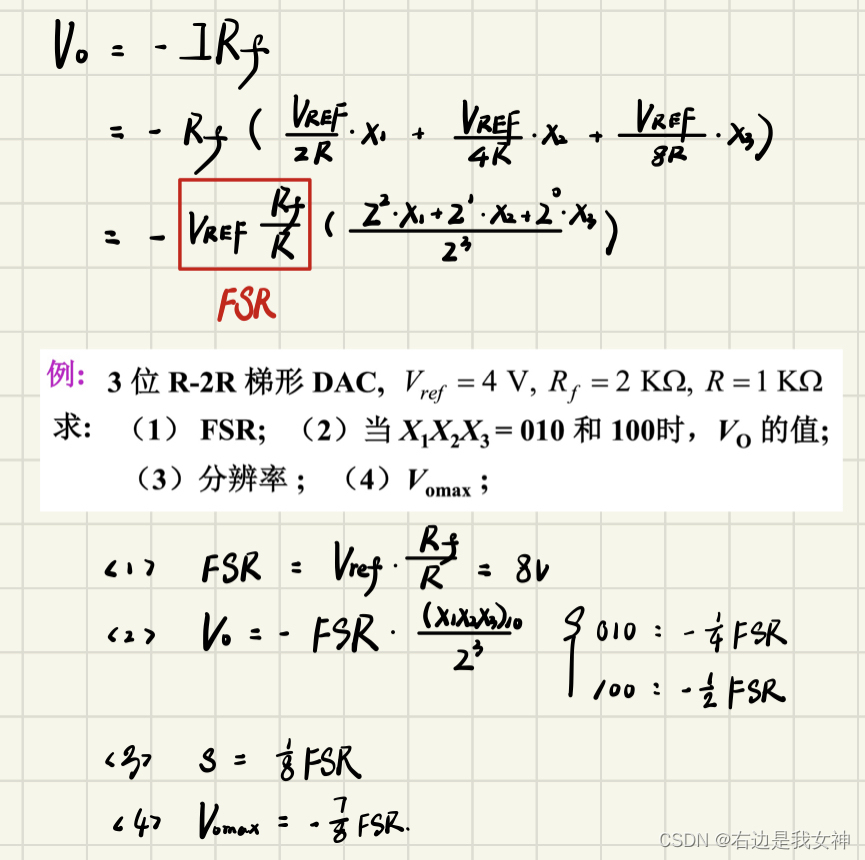 V₀ = - IRf
= - Rf ( VREF/2R · X₁ + VREF/4R · X₂ + VREF/8R · X₃ )
= - VREF Rf/R ( 2²·X₁+2¹·X₂+2⁰·X₃ / 2³ )
FSR
例: 3 位 R-2R 梯形 DAC, Vref = 4 V, Rf = 2 KΩ, R = 1 KΩ
求: （1） FSR; （2）当 X₁X₂X₃ = 010 和 100时, VO 的值;
（3）分辨率; （4）Vomax;
<1> FSR = Vref · Rf/R = 8V
<2> V₀ = - FSR · (X₁X₂X₃)₁₀ / 2³ { 010 : - 1/4 FSR
100 : - 1/2 FSR
<3> S = 1/8 FSR
<4> Vomax = - 7/8 FSR.
CSDN @右边是我女神